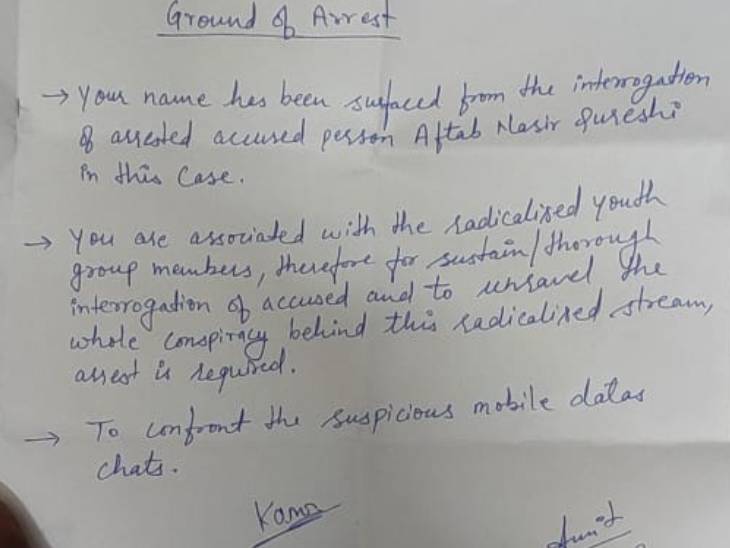 Ground of Arrest
→ Your name has been surfaced from the interrogation
of arrested accused person Aftab Nasir Qureshi
in this case.
→ You are associated with the radicalized youth
group members, therefore for sustain/thorough
interrogation of accused and to unravel the
whole conspiracy behind this radicalized stream,
arrest is required.
→ To confront the suspicious mobile datas
chats.